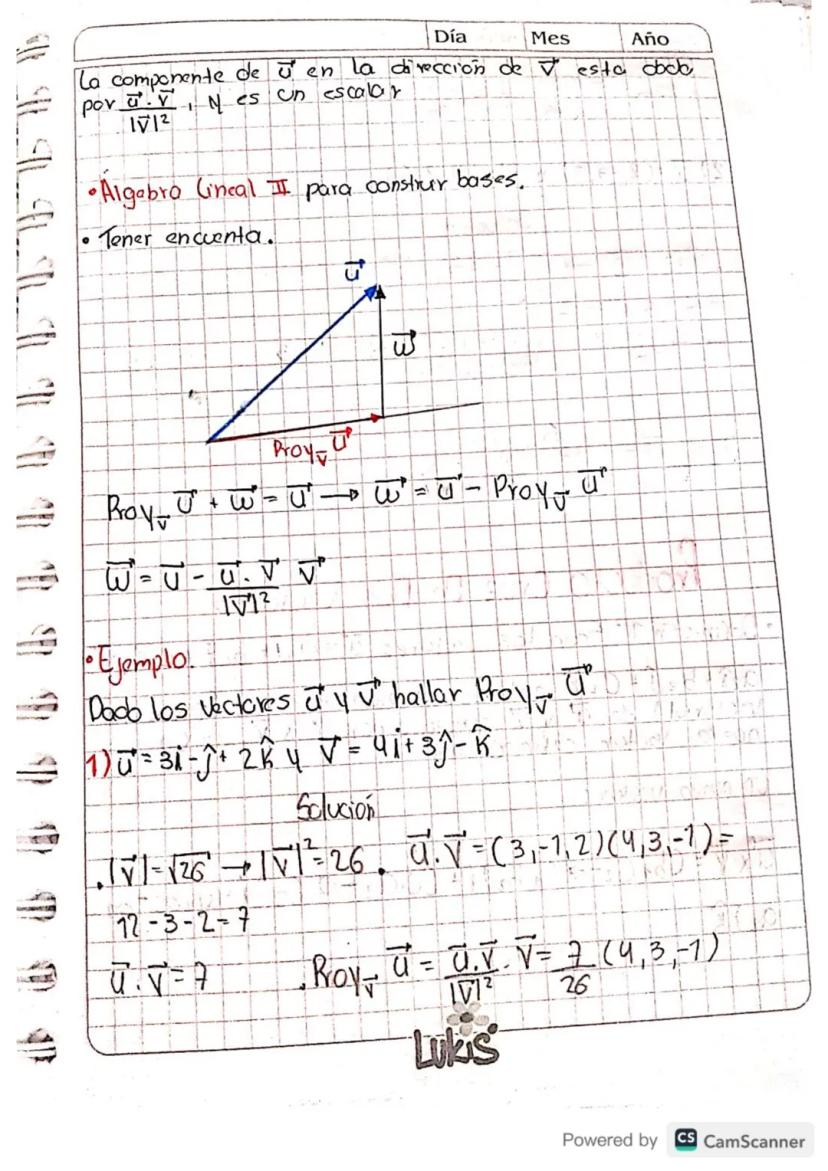 Día Mes Año
La componente de u⃗ en la dirección de v⃗ esta dada
por (u⃗ . v⃗)/|v⃗|², y es un escalar
• Álgebra Lineal II para construir bases.
• Tener encuenta.
u⃗
w⃗
Proy_v⃗ u⃗
Proy_v⃗ u⃗ + w⃗ = u⃗ → w⃗ = u⃗ - Proy_v⃗ u⃗
w⃗ = u⃗ - (u⃗ . v⃗)/|v⃗|² v⃗
• Ejemplo.
Dado los vectores u⃗ y v⃗ hallar Proy_v⃗ u⃗
1) u⃗ = 3i - ĵ + 2k̂ y v⃗ = 4i + 3ĵ - k̂
Solución
. |v⃗| = √26 → |v⃗|² = 26 . u⃗ . v⃗ = (3, -1, 2)(4, 3, -1) =
12 - 3 - 2 = 7
u⃗ . v⃗ = 7 . Proy_v⃗ u⃗ = (u⃗ . v⃗)/|v⃗|² . v⃗ = 7/26 (4, 3, -1)
Lukis
Powered by CS CamScanner